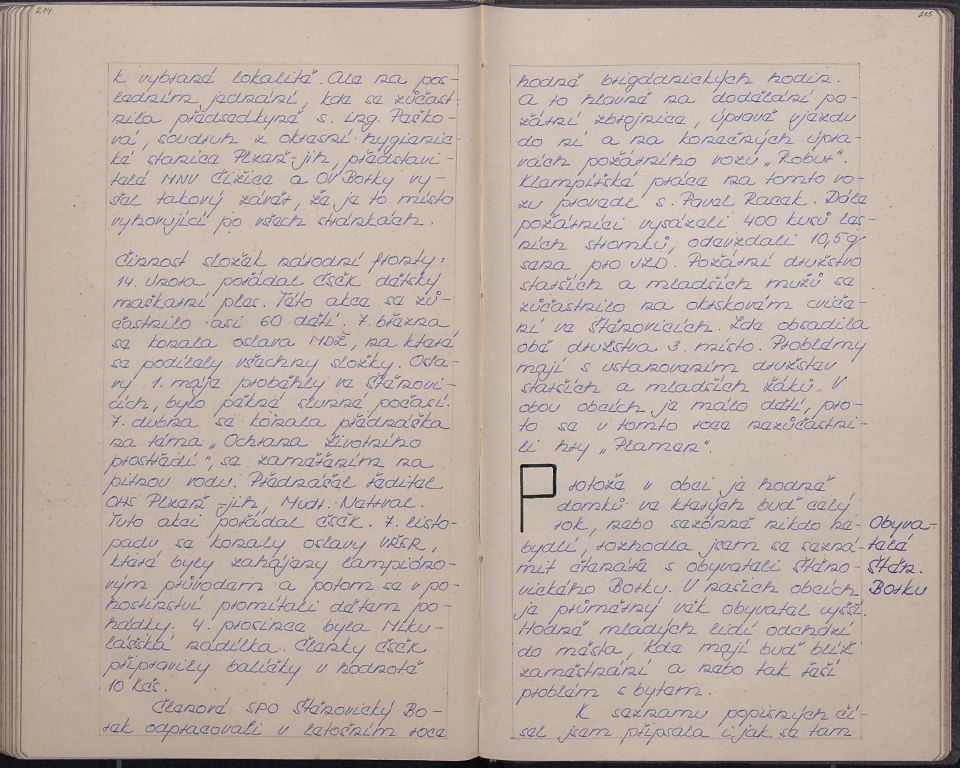 214.
k vybrané lokalitě. Ale na pos-
ledním jednání, kde se zúčast-
nila předsedkyně s. ing. Paško-
vá, soudruh z okresní hygienic-
ké stanice Plzeň-jih, představi-
telé MNV Čižice a OV Borky vy-
šel takový závěr, že je to místo
vyhovující po všech stránkách.
Činnost složek národní fronty:
14. února pořádal ČSČK dětský
maškarní ples. Této akce se zú-
častnilo asi 60 dětí. 7. března
se konala oslava MDŽ, na které
se podílely všechny složky. Osla-
vy 1. máje proběhly ve Štěnovi-
cích, bylo pěkné slunné počasí.
7. dubna se konala přednáška
na téma „Ochrana životního
prostředí", se zaměřením na
pitnou vodu. Přednášel ředitel
OHS Plzeň-jih, Mudr. Netrval.
Tuto akci pořádal ČSČK. 7. listo-
padu se konaly oslavy VŘSR,
které byly zahájeny lampióno-
vým průvodem a potom se v po-
hostinství promítali dětem po-
hádky. 4. prosince byla Miku-
lášská nadílka. Členky ČSČK
připravily balíčky v hodnotě
10 Kčs.
Členové SPO Štěnovický Bo-
rek odpracovali v letošním roce
215.
hodně brigádnických hodin.
A to hlavně na dodělání po-
žární zbrojnice, úpravě vjezdu
do ní a na konečných úpra-
vách požárního vozu „Robur".
Klempířské práce na tomto vo-
zu provedl s. Pavel Racek. Dále
požárníci vysázeli 400 kusů les-
ních stromků, odevzdali 10,5 q
sena pro JZD. Požární družstvo
starších a mladších mužů se
zúčastnilo na okrskovém cviče-
ní ve Štěnovicích. Zde obsadila
obě družstva 3. místo. Problémy
mají s ustanovením družstev
starších a mladších žáků. V
obou obcích je málo dětí, pro-
to se v tomto roce nezúčastni-
li hry „Plamen".
Protože v obci je hodně
domků ve kterých buď celý
rok, nebo sezónně nikdo ne-
bydlí, rozhodla jsem se sezná-
mit čtenáře s obyvateli Štěno-
vického Borku. V našich obcích
je průměrný věk obyvatel vyšší.
Hodně mladých lidí odchází
do města, kde mají buď blíž
zaměstnání a nebo tak řeší
problém s bytem.
K seznamu popisných čí-
sel jsem připsala i, jak se tam
Obyva-
telé
Štěn.
Borku